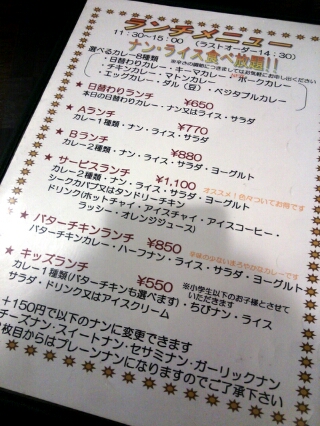 ランチメニュー
11:30~15:00 (ラストオーダー14:30)
ナン・ライス食べ放題!!
選べるカレー8種類
※辛さの調節につきましてはお気軽にお申し出ください
・日替わりカレー・キーマカレー・ポークカレー
・チキンカレー・マトンカレー
・エッグカレー・ダル(豆)・ベジタブルカレー
★日替わりランチ ¥650
本日の日替わりカレー・ナン又はライス・サラダ
★Aランチ ¥770
カレー1種類・ナン・ライス・サラダ
★Bランチ ¥880
カレー2種類・ナン・ライス・サラダ・ヨーグルト
★サービスランチ ¥1,100 オススメ!色々ついてお得です
カレー2種類・ナン・ライス・サラダ・ヨーグルト
シークカバブ又はタンドリーチキン
ドリンク(ホットチャイ・アイスチャイ・アイスコーヒー・
ラッシー・オレンジジュース)
★バターチキンランチ ¥850 辛味の少ないまろやかなカレーです
バターチキンカレー・ハーフナン・ライス・サラダ・ヨーグルト
★キッズランチ ¥550 ※小学生以下のお子様とさせて
いただきます
カレー1種類(バターチキンも選べます)・ちびナン・ライス
サラダ・ドリンク又はアイスクリーム
+150円で以下のナンに変更できます
チーズナン・スイートナン・セサミナン・ガーリックナン
枚目からはプレーンナンになりますのでご了承下さい